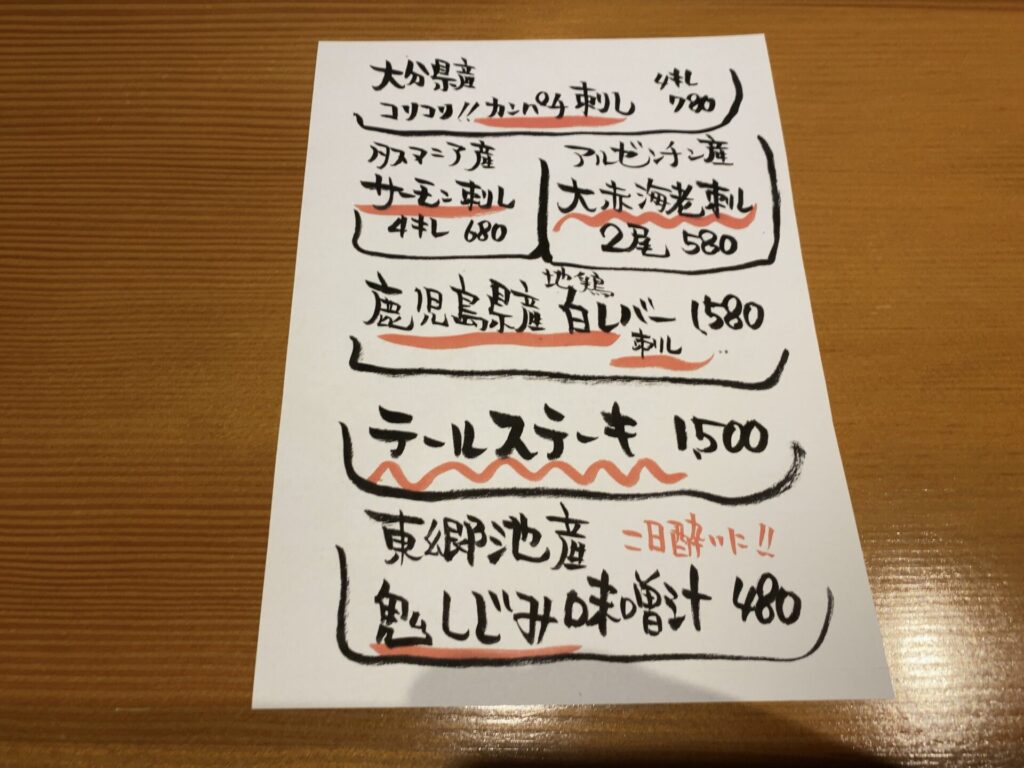 大分県産
コリコリ!!カンパチ刺し 4キレ 780
タスマニア産
サーモン刺し
4キレ 680
アルゼンチン産
大赤海老刺し
2尾 580
地鶏
鹿児島県産 白レバー 1580
刺し
テールステーキ 1,500
東郷池産 二日酔いに!!
鬼しじみ味噌汁 480